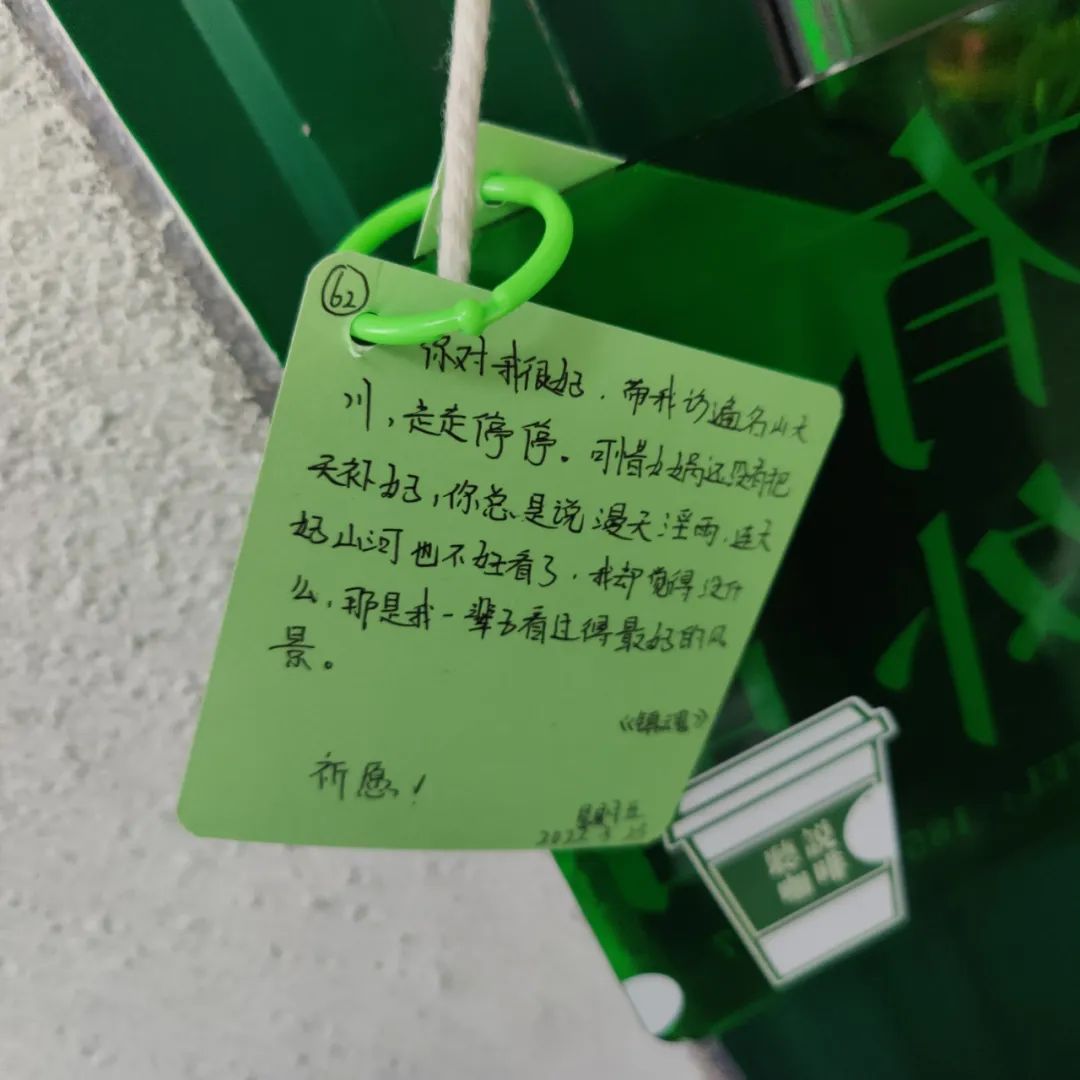 62
你对我很好,带我访遍名山大
川,走走停停。可惜女娲还没有把
天补好,你总是说漫天淫雨,连大
好山河也不好看了,我却觉得没什
么,那是我一辈子看过得最好的风
景。
《镇魂》
祈愿!
听说
咖啡